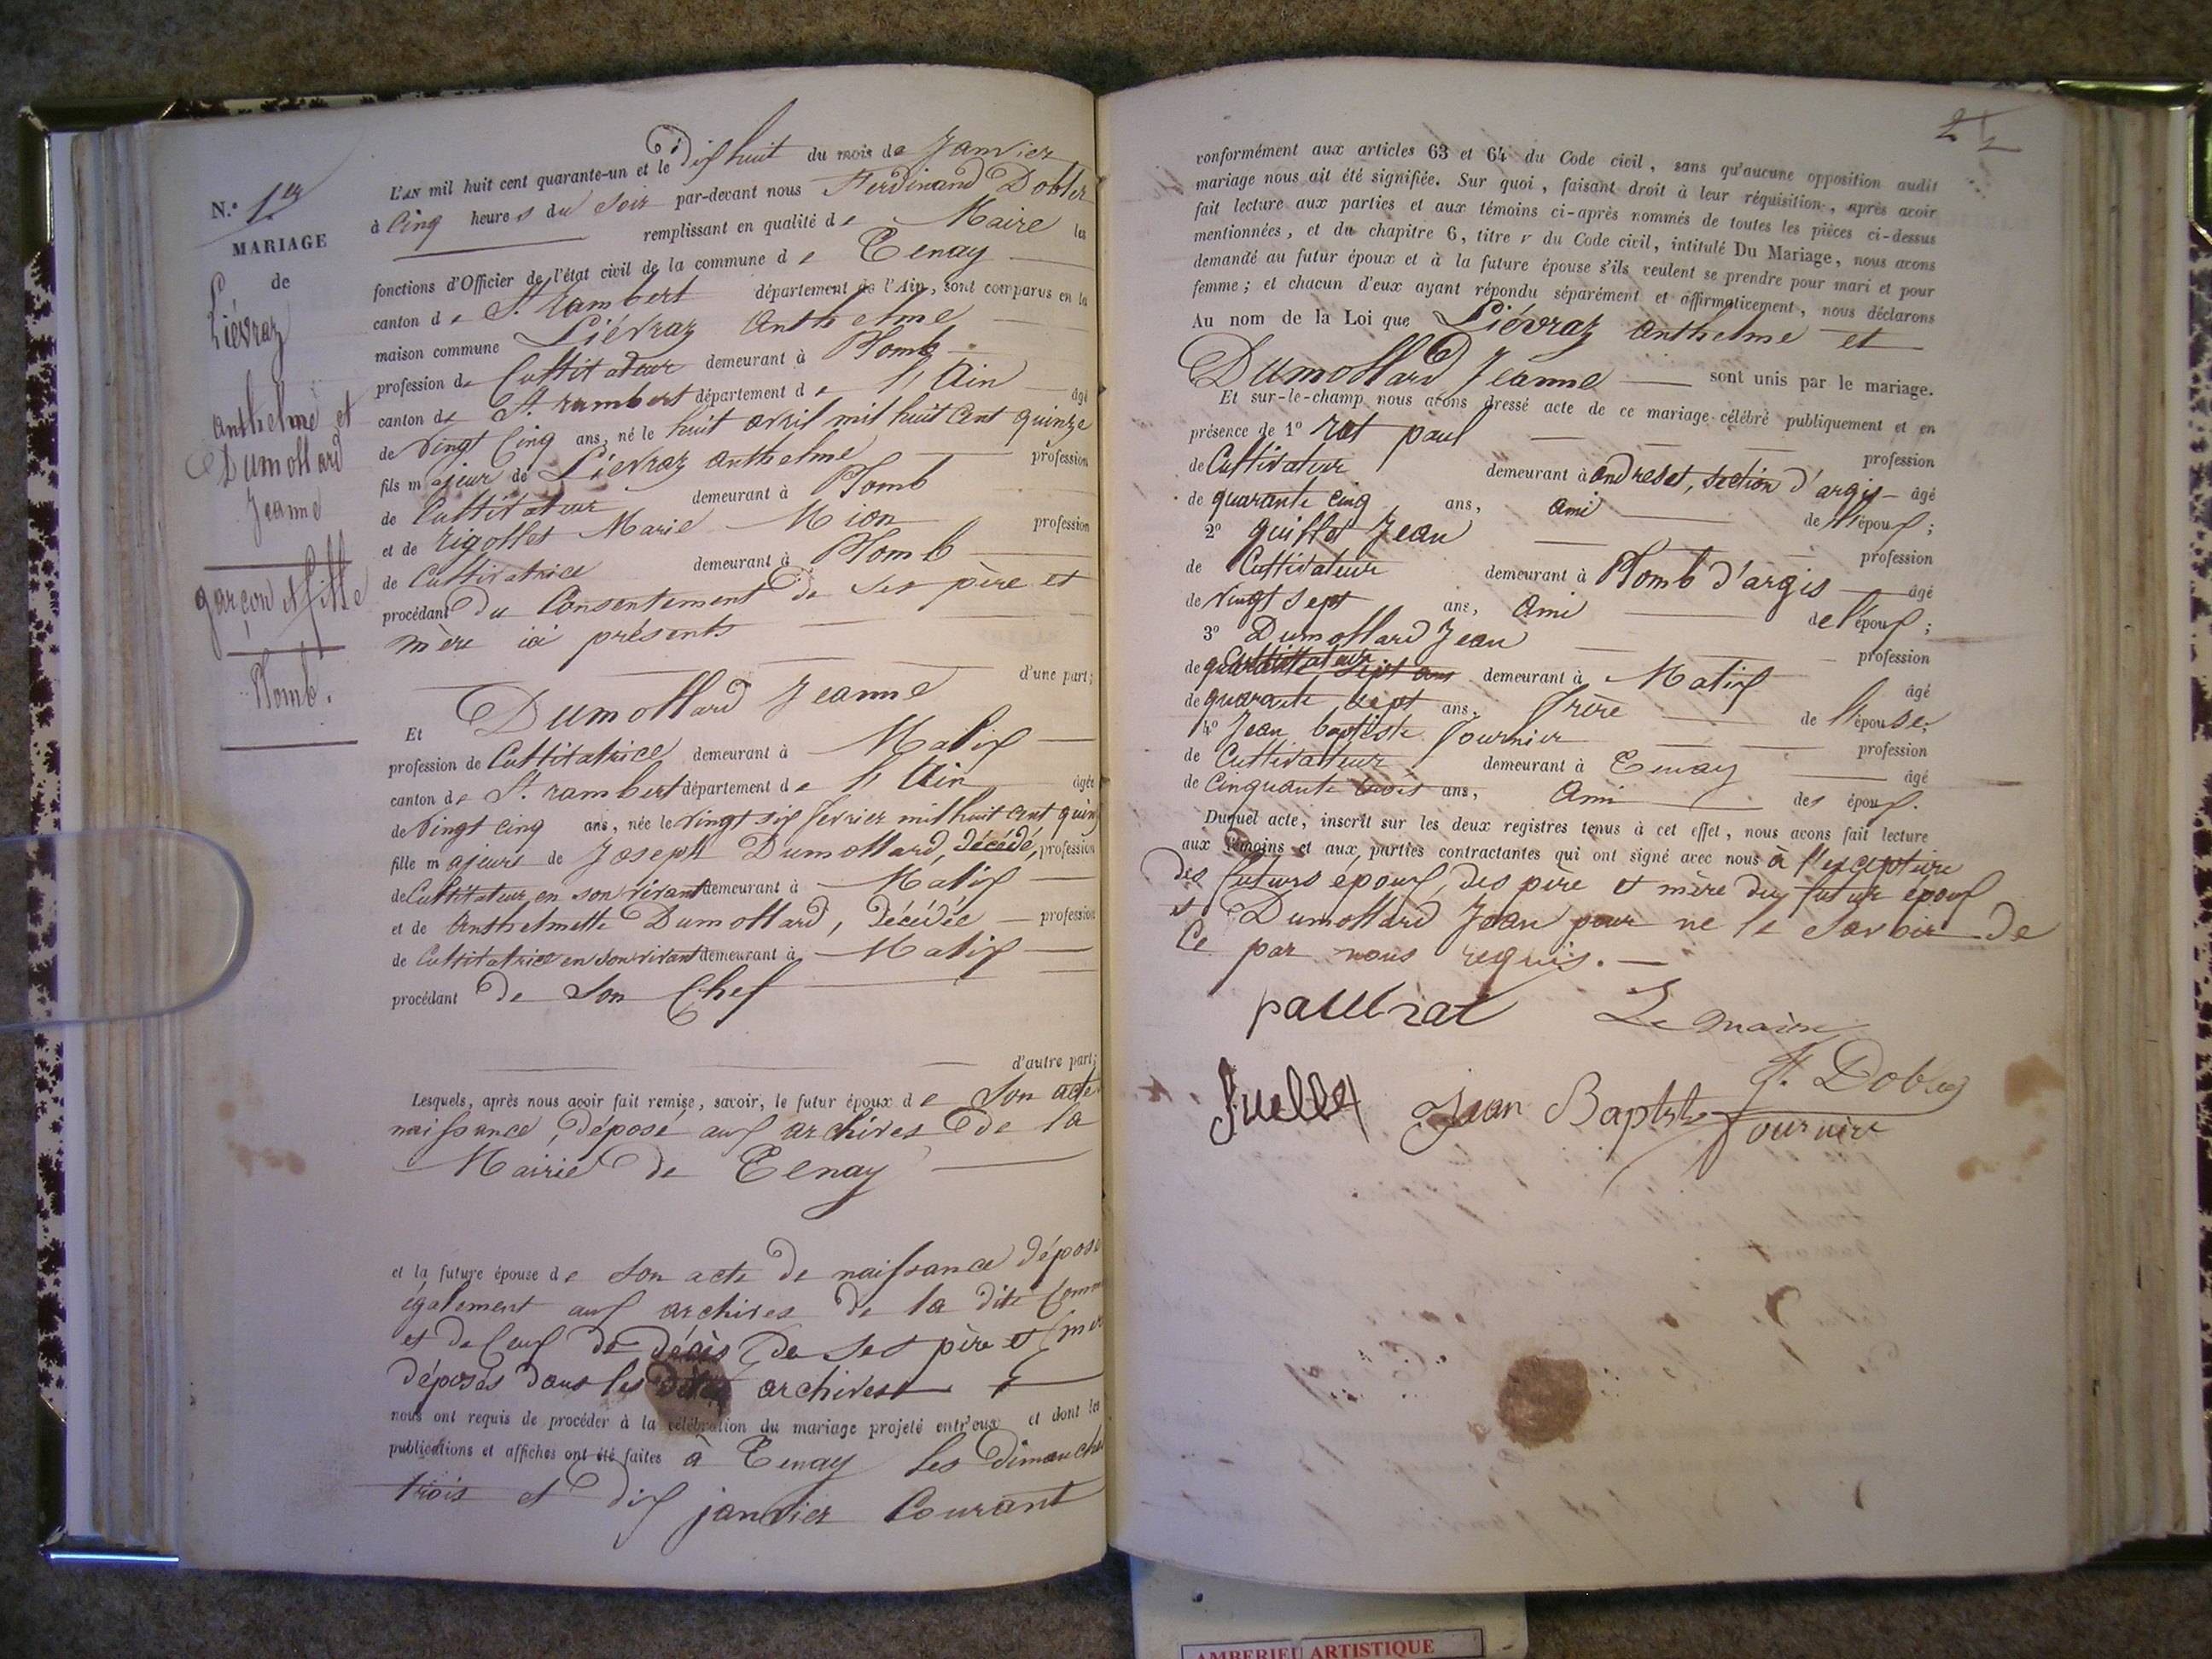 N.o 1er
MARIAGE
de
Liévraz
Anthelme et
Dumollard
Jeanne
garçon et fille
Plomb.
L'AN mil huit cent quarante-un et le Dix huit du mois de Janvier
à Cinq heures du Soir par-devant nous Ferdinand Dobler
remplissant en qualité de Maire les
fonctions d'Officier de l'état civil de la commune de Tenay
canton de St. rambert département de l'Ain, sont comparus en la
maison commune Liévraz Anthelme
profession de Cultivateur demeurant à Plomb
canton de St. rambert département de l'Ain âgé
de vingt cinq ans, né le huit avril mil huit cent quinze
fils majeur de Liévraz Anthelme profession
de Cultivateur demeurant à Plomb
et de rigollet Marie Mion profession
de Cultivatrice demeurant à Plomb
procédant du Consentement de ses père et
mère ici présents
d'une part;
Et Dumollard Jeanne
profession de Cultivatrice demeurant à Malix
canton de St. rambert département de l'Ain âgée
de vingt cinq ans, née le vingt six fevrier mil huit cent quinz
fille majeure de Joseph Dumollard, décédé, profession
de Cultivateur en son vivant demeurant à Malix
et de Anthelmette Dumollard, décédée profession
de Cultivatrice en son vivant demeurant à Malix
procédant de son Chef
d'autre part;
Lesquels, après nous avoir fait remise, savoir, le futur époux de Son acte
naissance, déposé aux archives de la
Mairie de Tenay
et la future épouse de son acte de naissance déposé
également aux archives de la dite
et de ceux de décès de ses père et
déposés dans les dites archives
nous ont requis de procéder à la célébration du mariage projeté entr'eux et dont les
publications et affiches ont été faites à Tenay les dimanche
trois et dix janvier Courant
2
conformément aux articles 63 et 64 du Code civil, sans qu'aucune opposition audit
mariage nous ait été signifiée. Sur quoi, faisant droit à leur réquisition, après avoir
fait lecture aux parties et aux témoins ci-après nommés de toutes les pièces ci-dessus
mentionnées, et du chapitre 6, titre v du Code civil, intitulé Du Mariage, nous avons
demandé au futur époux et à la future épouse s'ils veulent se prendre pour mari et pour
femme; et chacun d'eux ayant répondu séparément et affirmativement, nous déclarons
Au nom de la Loi que Liévraz Anthelme et
Dumollard Jeanne sont unis par le mariage.
Et sur-le-champ nous avons dressé acte de ce mariage célébré publiquement et en
présence de 1o Rat paul profession
de Cultivateur demeurant à andreset, section d'argis âgé
de quarante cinq ans, ami de l'époux;
2o guillet Jean profession
de Cultivateur demeurant à Plomb d'argis âgé
de vingt sept ans, ami de l'époux;
3o Dumollard Jean profession
de Cultivateur demeurant à Malix âgé
de quarante sept ans, frère de l'épouse;
4o Jean baptiste fournier profession
de Cultivateur demeurant à Tenay âgé
de cinquante trois ans, ami des époux.
Duquel acte, inscrit sur les deux registres tenus à cet effet, nous avons fait lecture
aux témoins et aux parties contractantes qui ont signé avec nous à l'exception
des futurs epoux, des père et mère du futur epoux
et Dumollard Jean pour ne le savoir de
ce par nous requis.
paul rat Le maire
F. Dobler
Jean Baptiste fournier
AMBERIEU ARTISTIQUE